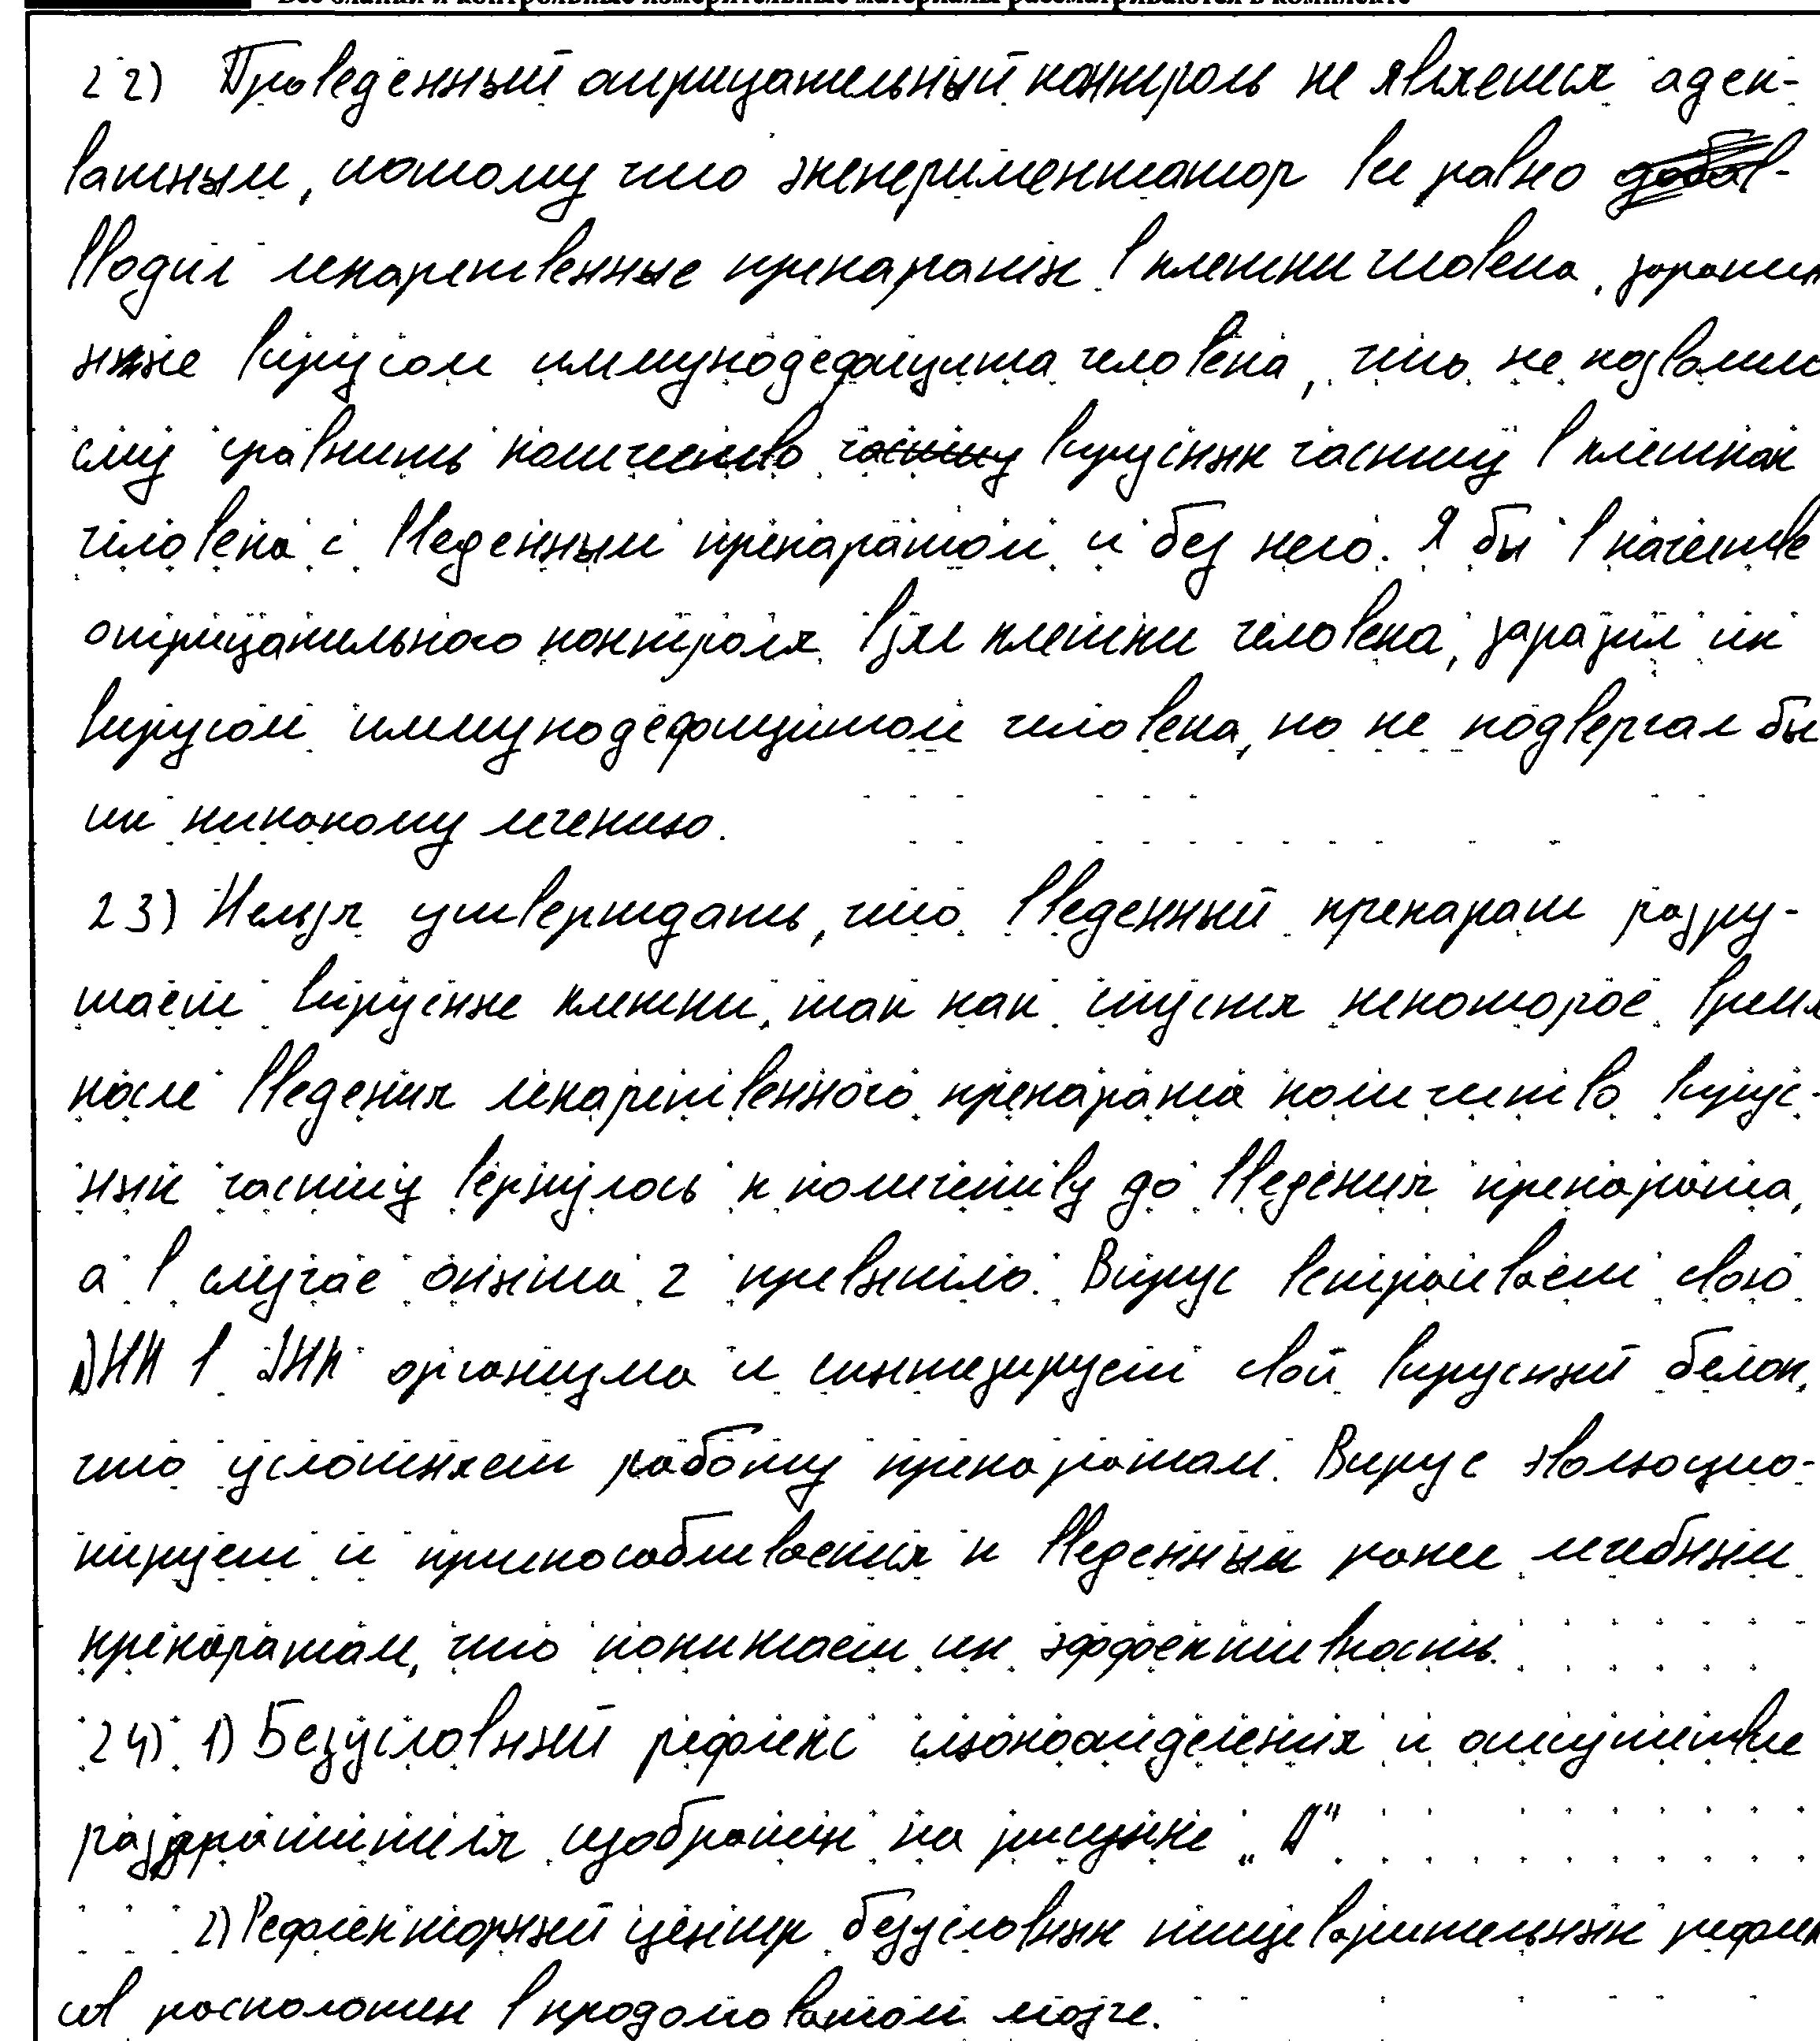 Все бланки и контрольные измерительные материалы рассматриваются в комплекте
22) Проведённый отрицательный контроль не является адек-
ватным, потому что экспериментатор всё равно
вводил лекарственные препараты в клетки человека, заражен
ные вирусом иммунодефицита человека, что не позволило
ему сравнить количество вирусных частиц в клетках
человека с введенным препаратом и без него. Я бы в качестве
отрицательного контроля взял клетки человека, заразил их
вирусом иммунодефицитом человека, но не подвергал бы
их никакому лечению.
23) Нельзя утверждать, что введенный препарат разру-
шает вирусные клетки, так как спустя некоторое время
после введения лекарственного препарата количество вирус-
ных частиц вернулось к количеству до введения препарата,
а в случае опыта 2 превысило. Вирус встраивает свою
ДНК в ДНК организма и синтезирует свой вирусный белок,
что усложняет работу препаратам. Вирус эволюцио-
нирует и приспосабливается к введенным ранее лечебным
препаратам, что понижает их эффективность.
24) 1) Безусловный рефлекс слюноотделения и отсутствие
раздражителя изображен на рисунке „А“
2) Рефлекторный центр безусловных пищеварительных рефлек
сов расположен в продолговатом мозге.